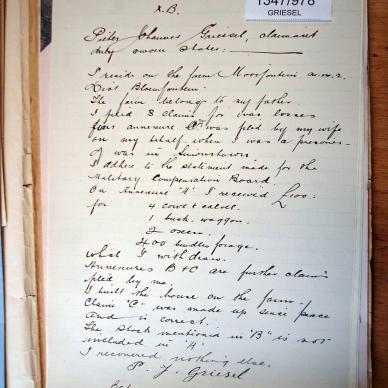 1347/978
GRIESEL
X.B.
Pieter Johannes Griesel, claimant
duly sworn states:
I reside on the farm Mooifontein
Dist Bloemfontein.
The farm belongs to my father.
I filed 3 claims for war losses
first annexure "A" was filed by my wife
on my behalf when I was a prisoner.
I was in Simonstown.
I adhere to the statement made for the
Military Compensation Board.
On Annexure "A" I received £100:
for 4 cows & calves.
1 buck waggon.
2 oxen.
400 bundles forage.
which I withdraw.
Annexures B + C are further claims
filed by me.
I built the house on the farm.
Claim "C" was made up since peace
and is correct.
The stock mentioned in "B" is not
included in "A"
I recovered nothing else.
P. J. Griesel